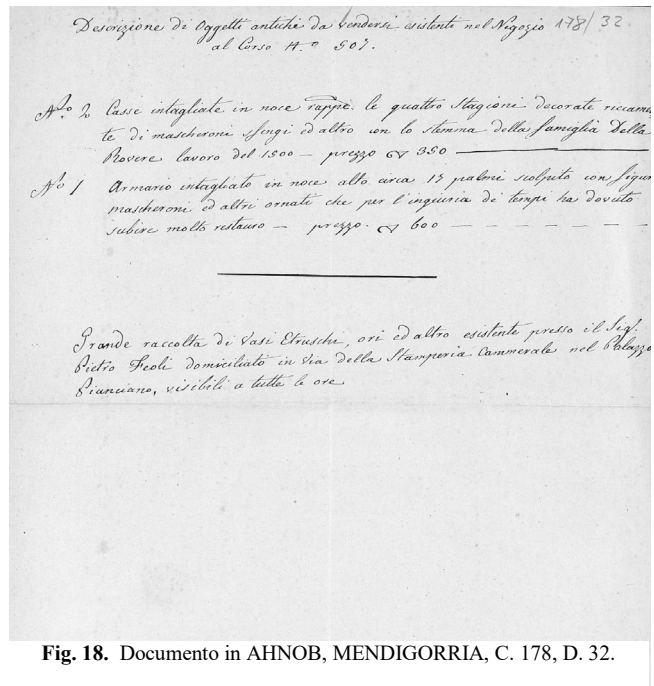 Descrizione di Oggetti antichi da vendersi esistente nel Negozio 178/32
al Corso N.º 507.
N.º 2 Casse intagliate in noce rappe. le quattro Stagioni decorate riccamen
te di mascheroni sfingi ed altro con lo stemma della famiglia Della
Rovere lavoro del 1500 — prezzo 350
N.º 1 Armario intagliato in noce alto circa 17 palmi scolpito con figur
mascheroni ed altri ornati che per l'ingiuria de tempi ha dovuto
subire molto restauro — prezzo. 600
Grande raccolta di Vasi Etruschi, ori ed altro esistente presso il Sig.
Pietro Feoli domiciliato in Via della Stamperia Cammerale nel Palazzo
Pianciano, visibili a tutte le ore
Fig. 18. Documento in AHNOB, MENDIGORRIA, C. 178, D. 32.